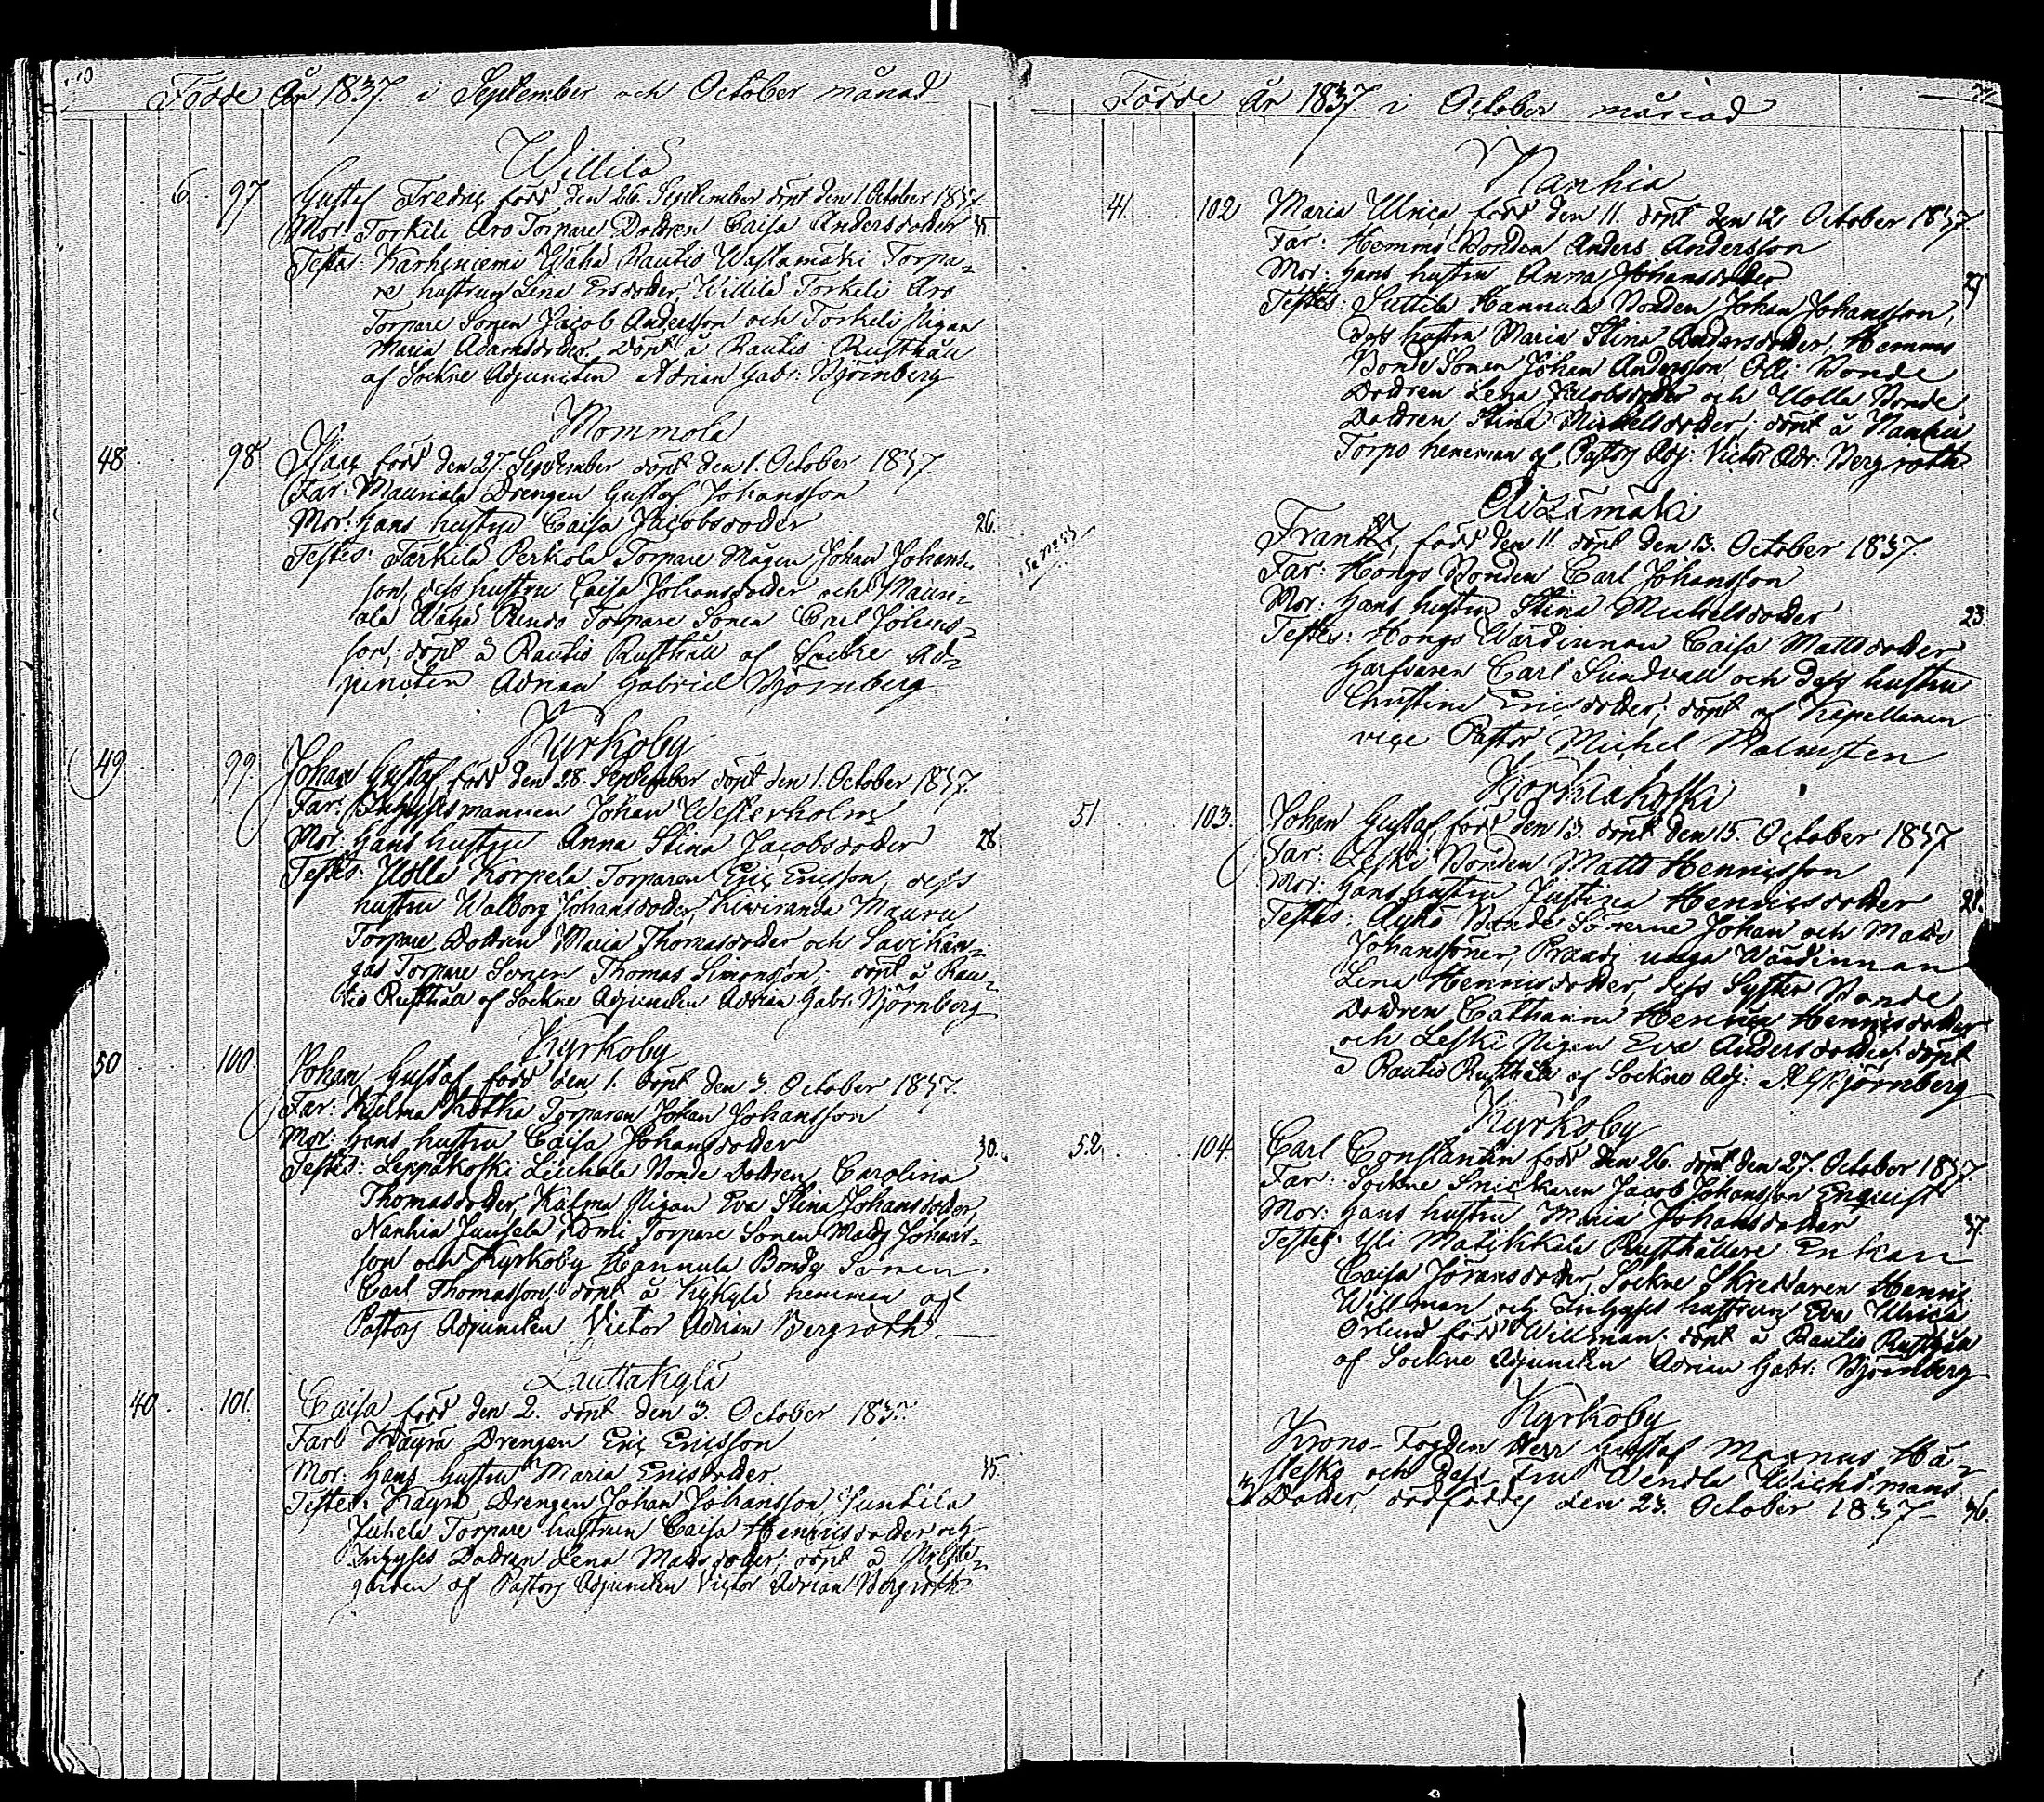 Födde År 1837. i September och October månad
Willilä
6. 97. Gustaf Fredric född den 26. September döpt den 1. October 1837.
Mor: Torkeli Aro Torpare Dottren Caisa Andersdotter 35.
Testes: Karhiniemi Wähä Rautio Wastamäki Torpa-
re hustrun Lena Ersdotter, Willilä Torkeli Aro
Torpare Sonen Jacob Andersson och Torkeli Pigan
Maria Adamsdotter. Döpt å Rautio Rusthåll
af Sockne Adjuncten Adrian Gabr: Björnberg
Mommola
48. 98. Isaac född den 27. September döpt den 1. October 1837
Far: Mauriala Drengen Gustaf Johansson
Mor: Hans hustru Caisa Jacobsdotter 26.
Testes: Torkila Perhola Torpare Mågen Johan Johans-
son, dess hustru Caisa Johansdotter och Mauri-
ala Wähä Torpare Sonen Carl Johans-
son; döpt å Rautio Rusthåll af Sockne Ad-
juncten Adrian Gabriel Björnberg
Kyrkoby
49. 99. Johan Gustaf, född den 28. September döpt den 1. October 1837.
Far: Inhysesmannen Johan Westerholm
Mor: Hans hustru Anna Stina Jacobsdotter 28.
Testes: Ylolla Korpela Torparen Eric Ericsson, dess
hustru Walborg Johansdotter, Kiviranda Mauru
Torpare Dottren Maria Thomasdotter och Savikan-
gas Torpare Sonen Thomas Simonsson; döpt å Rau-
tio Rusthåll af Sockne Adjuncten Adrian Gabr: Björnberg
Kyrkoby
50. 100. Johan Gustaf, född den 1. döpt den 3. October 1837.
Far: Kålma Kotka Torparen Johan Johansson
Mor: Hans hustru Caisa Johansdotter 30.
Testes: Leppäkoski Liuhala Bonde Dottren Carolina
Thomasdotter, Kålma Pigan Eva Stina Johansdotter,
Nanhia Junsela Komi Torpare Sonen Matts Johans-
son och Kyrkoby Hannula Bonde Sonen
Carl Thomasson; döpt å Kykylä hemman af
Pastors Adjuncten Victor Adrian Bergroth
Luttakylä
40. 101. Caisa född den 2. döpt den 3. October 1837.
Far: Käyrä Drengen Eric Ericsson
Mor: Hans hustru Maria Ericsdotter 35.
Testes: Käyrä Drengen Johan Johansson, Junkila
Juhela Torpare hustrun Caisa Henricsdotter och
Inhyses Dottren Lena Mattsdotter; döpt å Preste-
gården af Pastors Adjuncten Victor Adrian Bergroth
Födde År 1837 i October månad
Nanhia
41. 102. Maria Ulrica, född den 11. döpt den 12. October 1837.
Far: Hemmi Bonden Anders Andersson
Mor: Hans hustru Anna Johansdotter 29
Testes: Suttila Hannula Bonden Johan Johansson,
dess hustru Maria Stina Andersdotter, Hemmi
Bonde Sonen Johan Andersson, Olli Bonde
Dottren Lena Jacobsdotter och Ulolla Bonde
Dottren Stina Michelsdotter; döpt å Nanhia
Torpo hemman af Pastors Adj: Victor Adr: Bergroth
Frantz, född den 11. döpt den 13. October 1837.
Far: Hongo Bonden Carl Johansson
Mor: Hans hustru Stina Michelsdotter 23.
Testes: Hongo Wärdinnan Caisa Mattsdotter
Garfvaren Carl Sundvall och dess hustru
Christina Ericsdotter; döpt af Kapellanen
vice Pastor Michel Malmsten
Korkiakoski
51. 103. Johan Gustaf, född den 13. döpt den 15. October 1837
Far: Leski Bonden Matts Henricsson
Mor: Hans hustru Justina Henricsdotter 28.
Testes: Äyhö Bonde Sönerne Johan och Matts
Johanssöner, unga Wärdinnan
Lena Henricsdotter, dess Syster Bonde
Dottren Catharina Henrica Henricsdotter
och Leski Pigan Eva Andersdotter; döpt
å Rautio Rusthåll af Sockne Adj: AG Björnberg
Kyrkoby
52. 104. Carl Constantin född den 26. döpt den 27. October 1837.
Far: Sockne Snickaren Jacob Johansson Enquist
Mor: Hans hustru Maria Johansdotter 37.
Testes: Yli Matikkala Rusthållare Enkan
Caisa Göransdotter, Sockne Skreddaren Henric
Willman och Inhyses hustrun Eva Ulrica
Orlund född Willman; döpt å Rautio Rusthåll
af Sockne Adjuncten Adrian Gabr: Björnberg
Kyrkoby
Krono-Fogden Herr Gustaf Magnus Hä-
stesko och dess Fru Wendla Wichtmans
Dotter, dödfödd den 23. October 1837 - 36.